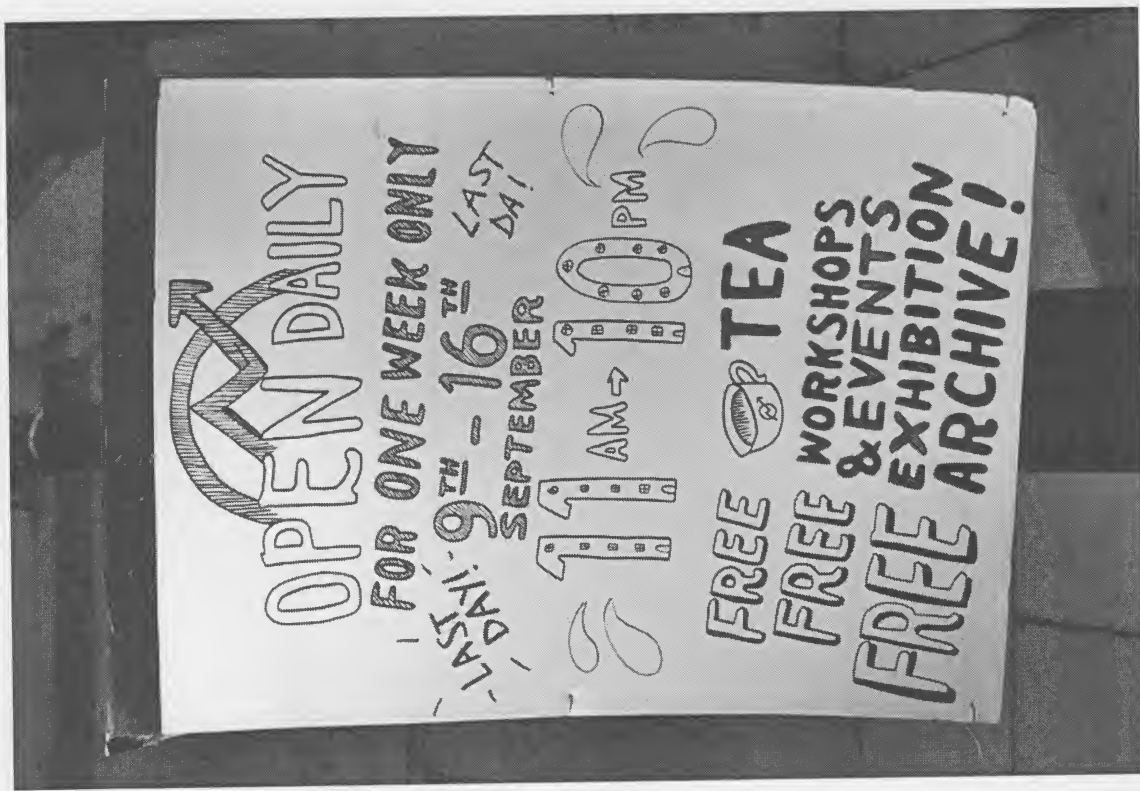 OPEN DAILY
FOR ONE WEEK ONLY
LAST DAY!! 9TH – 16TH LAST DA!
SEPTEMBER
11 AM → 10 PM
FREE TEA
FREE WORKSHOPS & EVENTS
FREE EXHIBITION ARCHIVE!